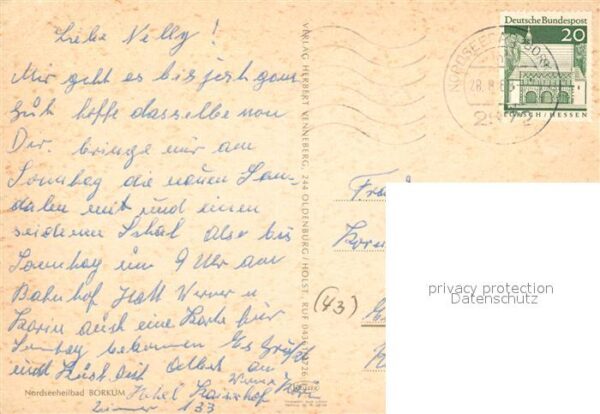 Liebe Nelly!
Mir geht es bis jetzt ganz
gut hoffe dasselbe von
Dir. bringe mir am
Sonntag die neuen San-
dalen mit und einen
seidenen Schal also bis
Sonntag um 9 Uhr am
Bahnhof Hatt Werner u
Karin auch eine Karte für
Sonntag bekommen Es Grüßt
und Küsst Dich
Hotel Kaiserhof
Zimmer 133
Nordseeheilbad BORKUM
VERLAG HERBERT VENNEBERG, 244 OLDENBURG/HOLST. RUF 04361
Deutsche Bundespost
20
LORSCH/HESSEN
NORDSEE
2972
Frau
(43)
privacy protection
Datenschutz